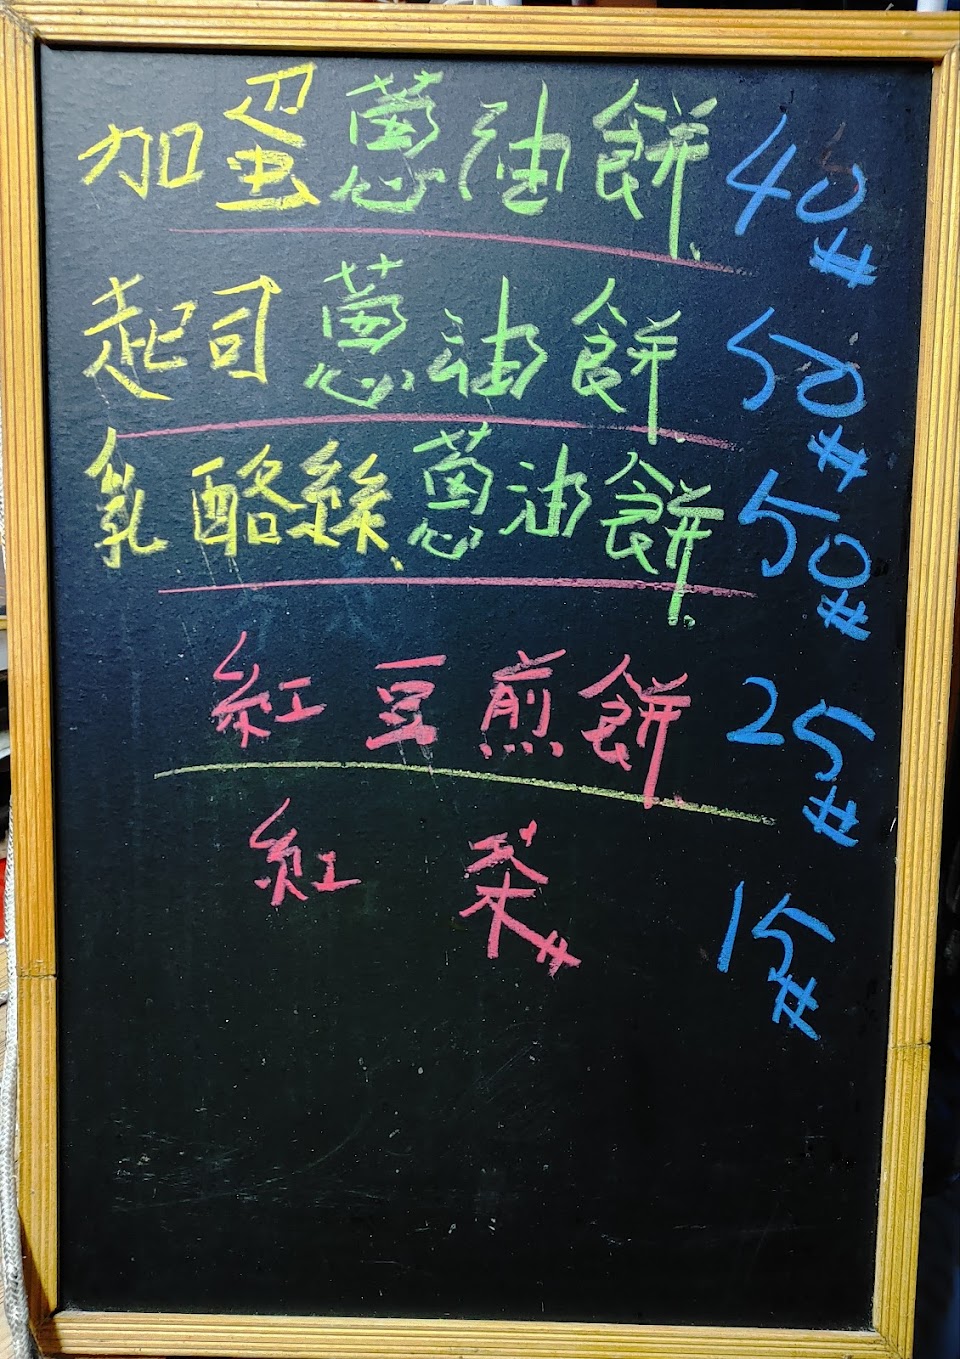 加蛋蔥油餅 40#
起司蔥油餅 50#
乳酪絲蔥油餅 50#
紅豆煎餅 25#
紅茶 15#